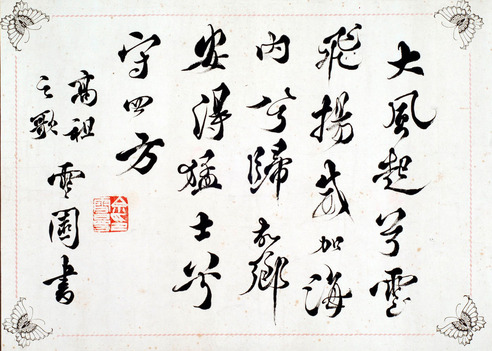 大風起兮雲
飛揚威加海
內兮歸故鄉
安得猛士兮
守四方
高祖
之歌
雲園書